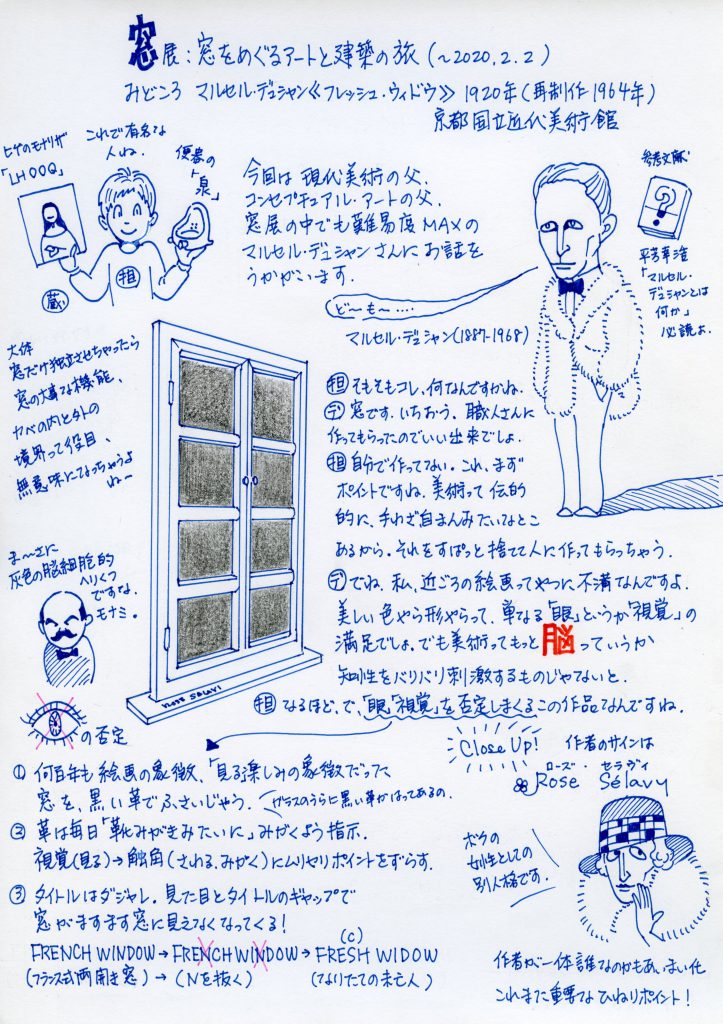 窓展：窓をめぐるアートと建築の旅（〜2020.2.2）
みどころ マルセル・デュシャン《フレッシュ・ウィドウ》1920年（再制作1964年）
京都国立近代美術館
ヒゲのモナリザ
「LHOOQ」
これで有名な
人ね．
便器の
「泉」
担
蔵
今回は現代美術の父．
コンセプチュアル・アートの父．
窓展の中でも難易度MAXの
マルセル・デュシャンさんにお話を
うかがいます．
ど〜も〜‥‥
マルセル・デュシャン（1887-1968）
参考文献
?
平芳幸浩
「マルセル・
デュシャンとは
何か」
必読よ．
大体
窓だけ独立させちゃったら
窓の大事な機能、
カベの内と外の
境界って役目、
無意味になっちゃうよ
ね〜
ま〜さに
灰色の脳細胞的
ヘリくつ
ですな．
モナミ。
ROSE SELAVY
担 そもそもコレ、何なんですかね．
デ 窓です．いちおう．職人さんに
作ってもらったのでいい出来でしょ．
担 自分で作ってない。これ、まず
ポイントですね．美術って伝統
的に、手わざ自まんみたいなとこ
あるから。それをすぱっと捨てて人に作ってもらっちゃう．
デ でね．私、近ごろの絵画ってやつに不満なんですよ．
美しい色やら形やらって、単なる「眼」というか「視覚」の
満足でしょ．でも美術ってもっと脳っていうか
知性をバリバリ刺激するものじゃないと．
担 なるほど．で、「眼」「視覚」を否定しまくるこの作品なんですね．
の否定
① 何百年も絵画の象徴、「見る楽しみの象徴だった
窓を、黒い革でふさいじゃう．
ガラスのうらに黒い革がはってあるの．
② 革は毎日「靴みがきみたいに」みがくよう指示．
視覚（見る）→触角（さわる、みがく）にムリヤリポイントをずらす．
③ タイトルはダジャレ．見た目とタイトルのギャップで
窓がますます窓に見えなくなってくる！
FRENCH WINDOW → FRENCH WINDOW → FRESH WIDOW
(c)
（フランス式両開き窓）→（Nを抜く）（なりたての未亡人）
Close Up!
作者のサインは
ローズ・セラヴィ
Rose Sélavy
ボクの
女性としての
別人格です．
作者が一体誰なのかもあいまい化
これまた重要なひねりポイント！